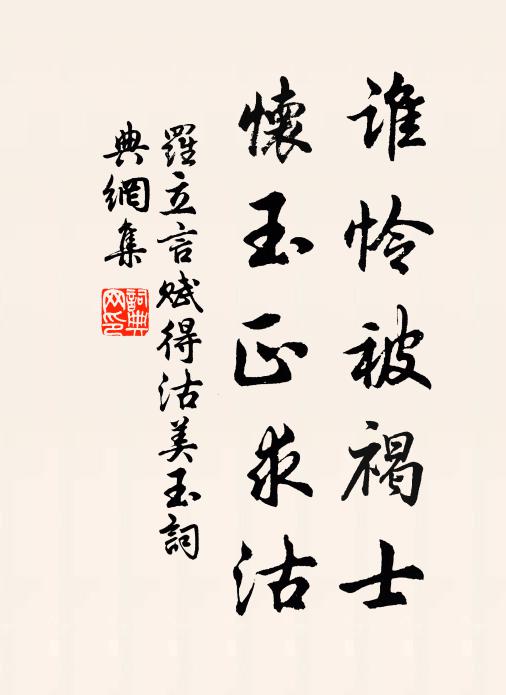 谁怜被褐士
懷玉正求沽
羅立言賦得沽美玉詞
典網集
詞典
网印